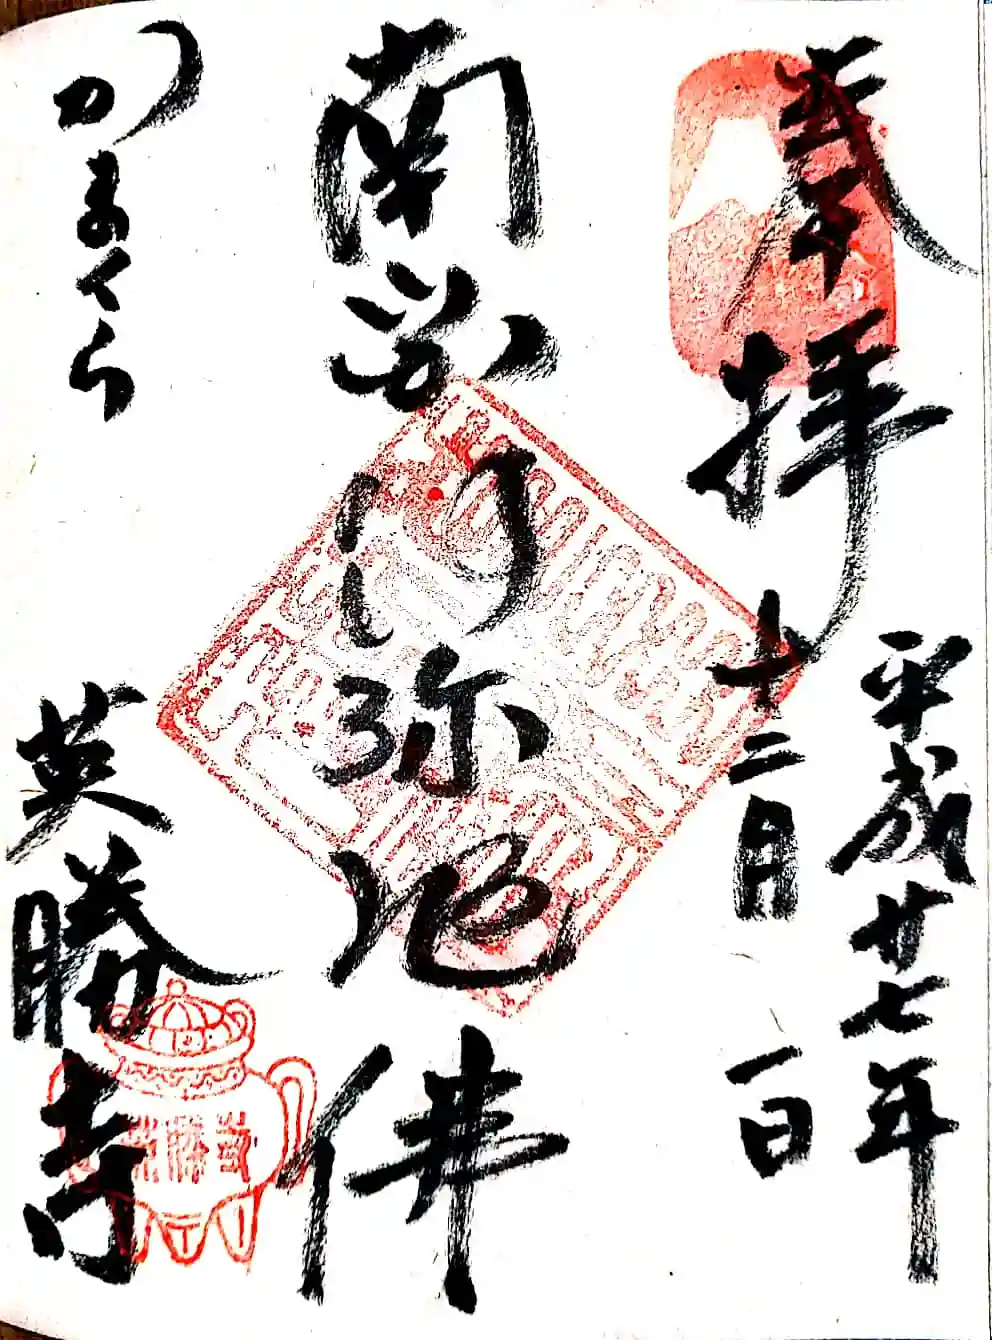 奉拝
平成廿七年
十二月一日
南無阿弥陀佛
かまくら
英勝寺